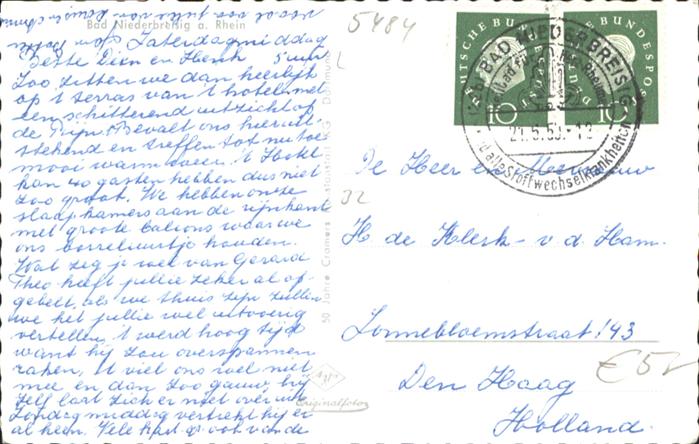 Bad Niederbreisig a. Rhein
Zaterdagmiddag
Beste Dien en Henk 5 uur
Zoo zitten we dan heerlijk
op 't terras van 't hotel met
een schitterend uitzicht op
de Rijn. Bevalt ons hier uit-
stekend en treffen tot nu toe
mooi warm weer. 't Hotel
kan 40 gasten hebben dus niet
zoo groot. We hebben onze
slaapkamers aan de rijnkant
met groote balcons waar we
ons borreluurtje houden.
Wat zeg je wel van Gerard
Theo heeft jullie zeker al op-
gebeld, als we thuis zijn zullen
we het jullie wel uitvoerig
vertellen, 't werd hoog tijd
want hij zou overspannen
raken, 't viel ons wel niet
mee en dan zoo gauw, hij
zelf laat zich er niet over uit
Zondagmiddag vertrekt hij er
al heen. Vele hart. gr. ook van de
50 Jahre Cramers Kunstanstalt KG Dortmund
Originalfoto
5484
DEUTSCHE BUNDESPOST
10
DEUTSCHE BUNDESPOST
10
(22b) BAD NIEDERBREISIG
21.5.59.-18
alle Stoffwechselkrankheiten
32
De Heer en Mevrouw
H de Klerk - v d Ham.
Zonnebloemstraat 143
€ 5
Den Haag
Holland.